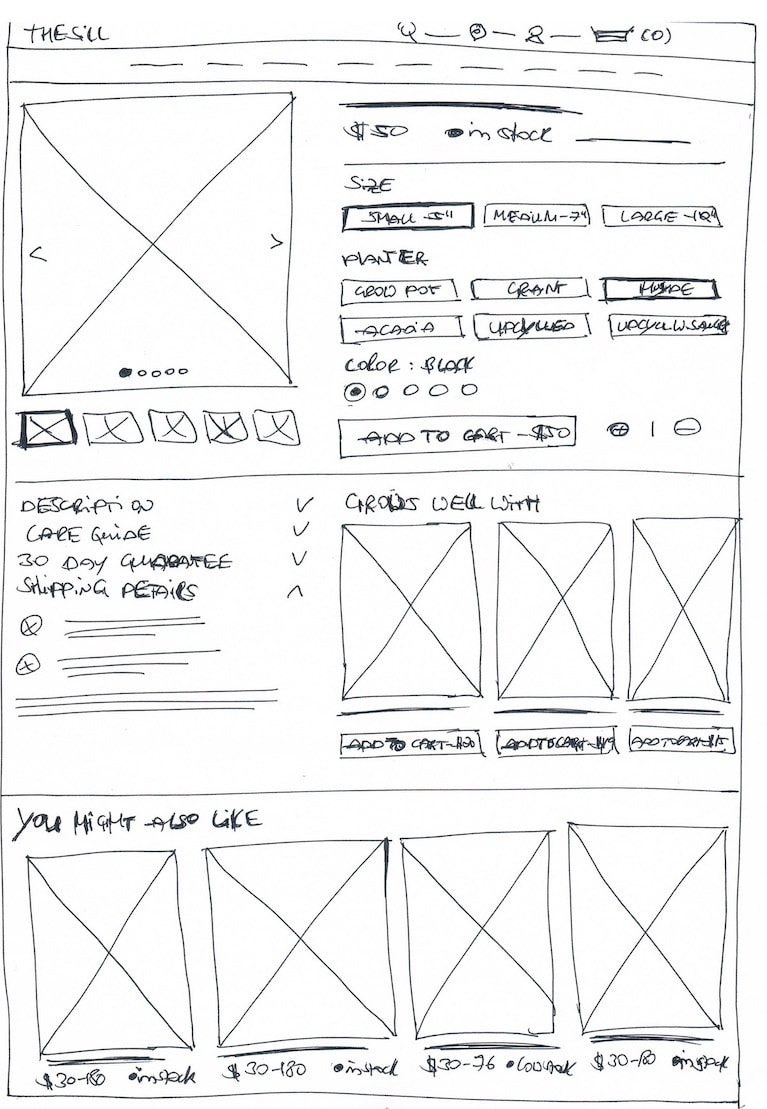 THESILL (0)
$50 in stock
SIZE
SMALL-5" MEDIUM-7"
PLANTER
GROW POT GRANT HYDE
ACACIA UPCYCLED
COLOR: BLACK
ADD TO CART-$50 1
DESCRIPTION
CARE GUIDE
30 DAY
SHIPPING
GROWS WELL WITH
ADD TO CART-$20 ADD TO CART ADD TO CART-$15
YOU MIGHT ALSO LIKE
$30-180 in stock $30-180 in stock $30-76 $30-180 in stock